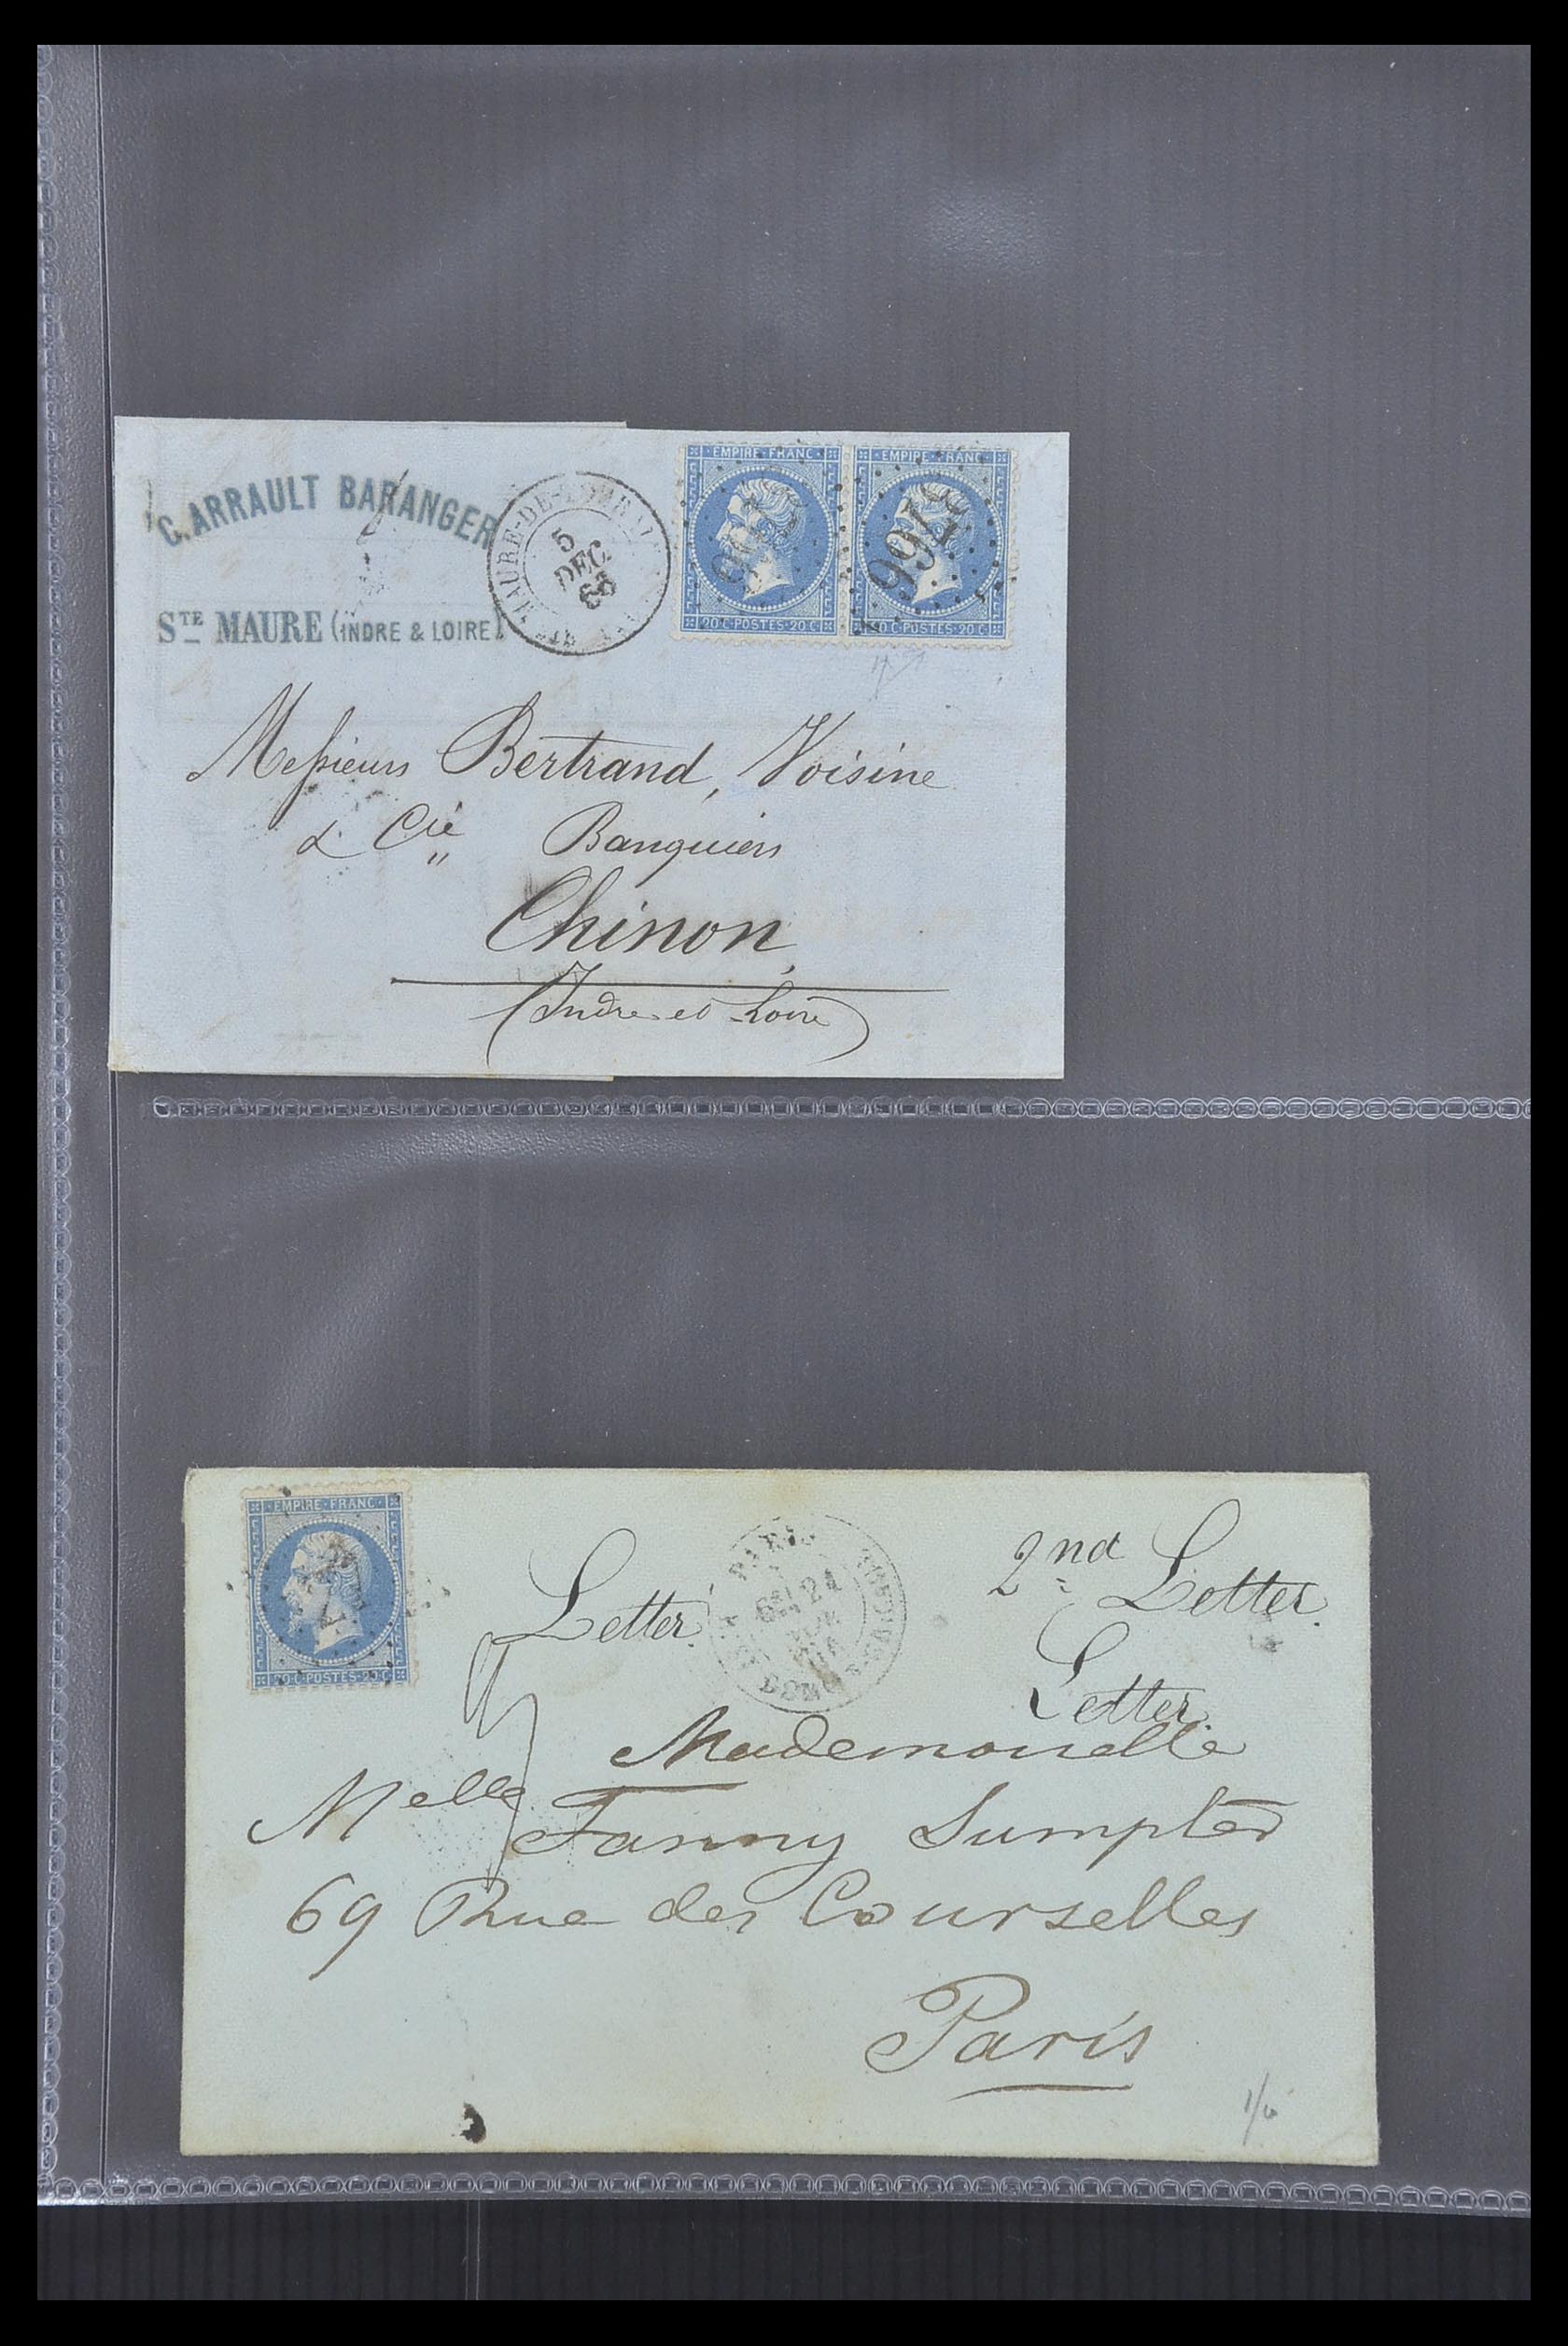 C. ARRAULT BARANGER
STE MAURE (INDRE & LOIRE)
STE MAURE-DE-
5
DEC.
EMPIRE · FRANC ·
20 C · POSTES · 20 C
3766
EMPIRE · FRANC ·
20 C · POSTES · 20 C
3766
Messieurs Bertrand, Voisine
& Cie Banquiers
Chinon,
(Indre et Loire)
EMPIRE · FRANC ·
20 C · POSTES · 20 C
Letter
PARIS
24
2nd Letter.
Letter.
Mademoiselle
Melle Fanny Sumpter
69 Rue des Courselles
Paris